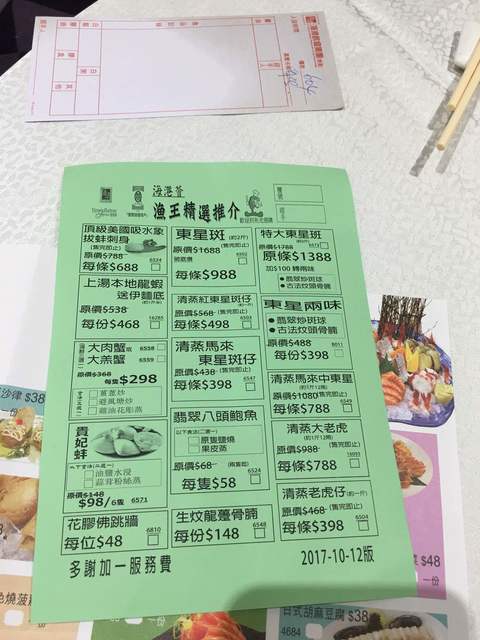 海港薈
漁王精選推介
頂級美國吸水象
拔蚌刺身
(售完即止)
原價$788
6524
每條$688
上湯本地龍蝦
送伊麵底
原價$538
16285
每份$468
大肉蟹 6558
大羔蟹 6559
原價$368
每隻$298
薑葱炒
避風塘炒
雞油花彫蒸
貴妃蚌
油鹽水浸
蒜茸粉絲蒸
原價$148
$98/6隻 6571
花膠佛跳牆
6810
每位$48
東星斑 (約2斤)
原價$1688 (售完即止)
6502
每條$988
清蒸紅東星斑仔
原價$568 (售完即止)
6503
每條$498
清蒸馬來
東星斑仔
原價$438 (售完即止)
6547
每條$398
翡翠八頭鮑魚
以下食法(二選一)
原隻鹽燒
果皮蒸
原價$68 (兩隻起)
6524
每隻$58
生炆龍躉骨腩
6548
每份$148
特大東星斑
原價$1788
原條$1388
加$100 轉兩味
翡翠炒斑球
古法炆頭骨腩
東星兩味
翡翠炒斑球
古法炆頭骨腩
原價$488 (售完即止)
8011
每份$398
清蒸馬來中東星
(約1斤12兩)
原價$1080 (售完即止)
6549
每條$788
清蒸大老虎
(約1斤12兩)
原價$988 (售完即止)
16093
每條$788
清蒸老虎仔(約一斤)
原價$468 (售完即止)
6504
每條$398
多謝加一服務費
2017-10-12版
沙律 $38
一份
$48
一份
色燒菠
日式胡麻豆腐 $38
4684
一份